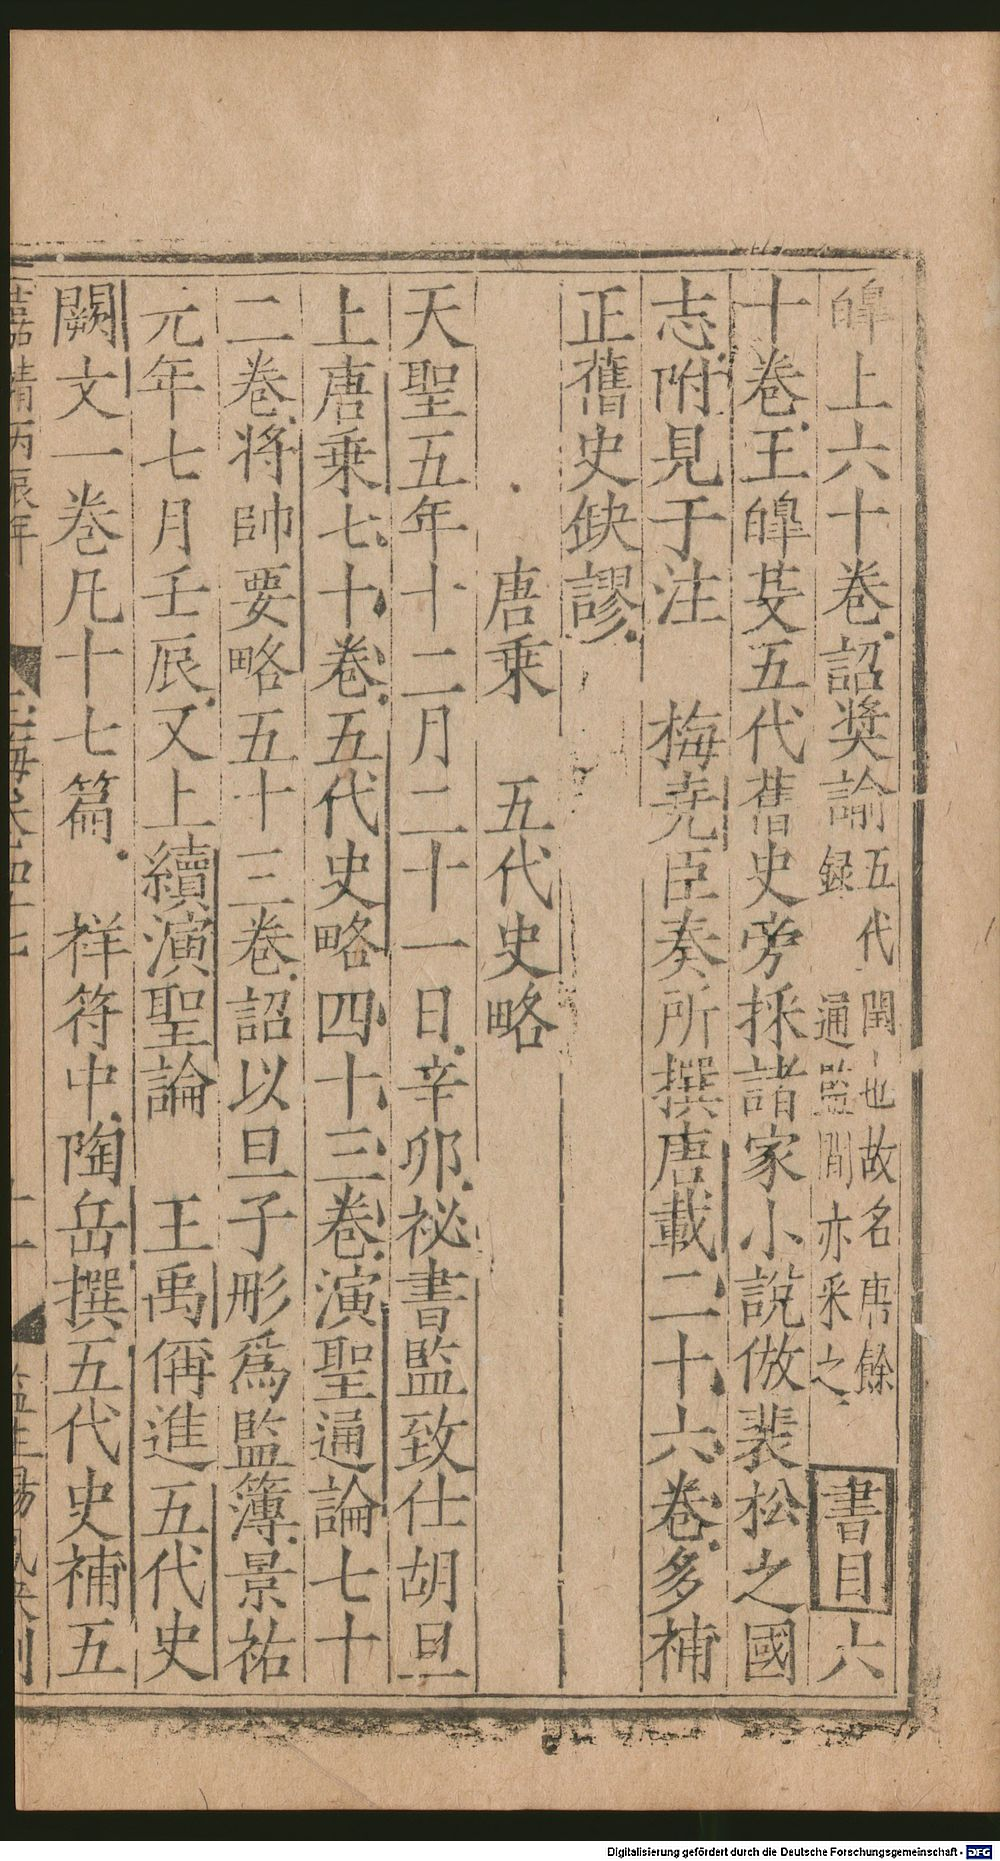 皥上六十卷詔奬諭五代閏也故名唐餘録 通監間亦采之 書目六
十卷王皥芟五代舊史旁採諸家小說倣裴松之國
志附見于注 梅尭臣奏所撰唐載二十六卷多補
正舊史缺謬
唐乗 五代史略
天聖五年十二月二十一日辛卯祕書監致仕胡旦
上唐乗七十卷五代史略四十三卷演聖通論七十
二卷將帥要略五十三卷詔以旦子彤爲監簿景祐
元年七月壬辰又上續演聖論 王禹偁進五代史
闕文一卷凡十七篇 祥符中陶岳撰五代史補五
嘉靖丙辰年 玉海卷四十七 十一 監生楊
Digitalisierung gefördert durch die Deutsche Forschungsgemeinschaft - DFG